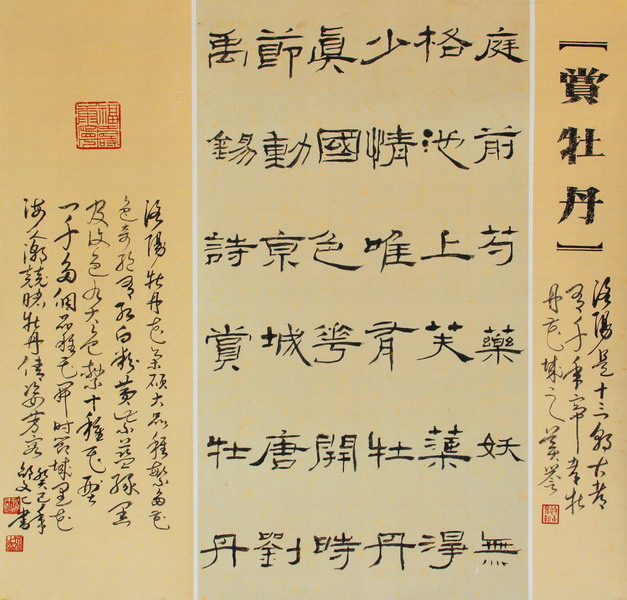 【賞牡丹】
洛陽是十三朝古都
有千年帝牡
丹花城之美譽
庭前芍藥妖無
格池上芙蕖淨
少情唯有牡丹
眞國色華開時
節動京城唐劉
禹錫詩賞牡丹
洛陽牡丹花朵碩大品種繁多花
色奇絕有紅白粉黃紫藍綠黑
及複色九大色繫十種花型
一千多個品種花開時節城裏花
海人潮競睹牡丹倩姿芳容
癸巳年
書